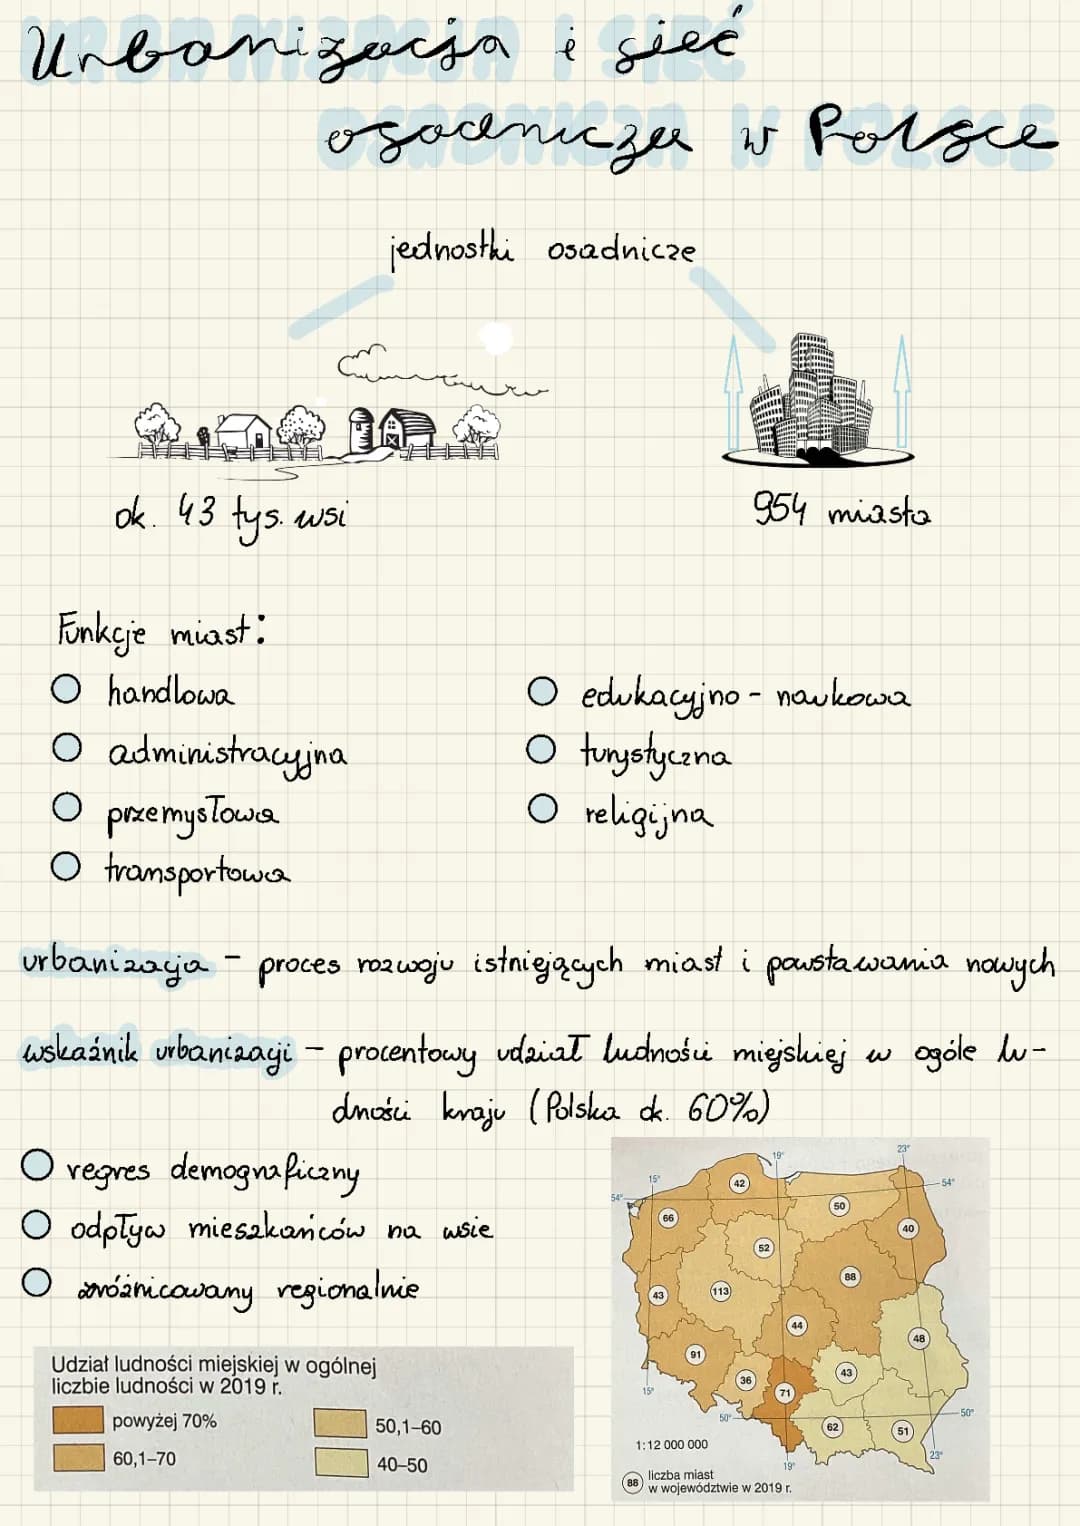 Urbanizacja i sieć
osadnicza w Polsce
jednostki osadnicze
ok. 43 tys. wsi
954 miasta
Funkcje miast:
handlowa
administracyjna
przemysłowa
transportowa
edukacyjno - naukowa
turystyczna
religijna
urbanizacja - proces rozwoju istniejących miast i powstawania nowych
wskaźnik urbanizacji - procentowy udział ludności miejskiej w ogóle lu-
dności kraju (Polska ok. 60%)
regres demograficzny
odpływ mieszkańców na wsie
zróżnicowany regionalnie
Udział ludności miejskiej w ogólnej
liczbie ludności w 2019 r.
powyżej 70%
60,1–70
50,1–60
40–50
19° 23°
15°
54° 54°
42
66
50
40
52
88
43
113
44
48
91
43
36
71
15°
50° 50°
62
51
23°
19°
1:12 000 000
88 liczba miast
w województwie w 2019 r.